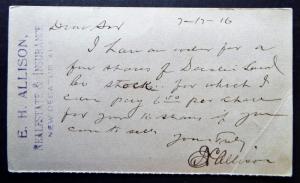 E. H. ALLISON.
REAL ESTATE & INSURANCE
NEW DECATUR, ALA.
Dear Sir 7-17-16
I have an order for a
few shares of Decatur Land
Co stock for which I
can pay 6.00 per share
for your 10 shares if you
care to sell
Yours Truly
E H Allison